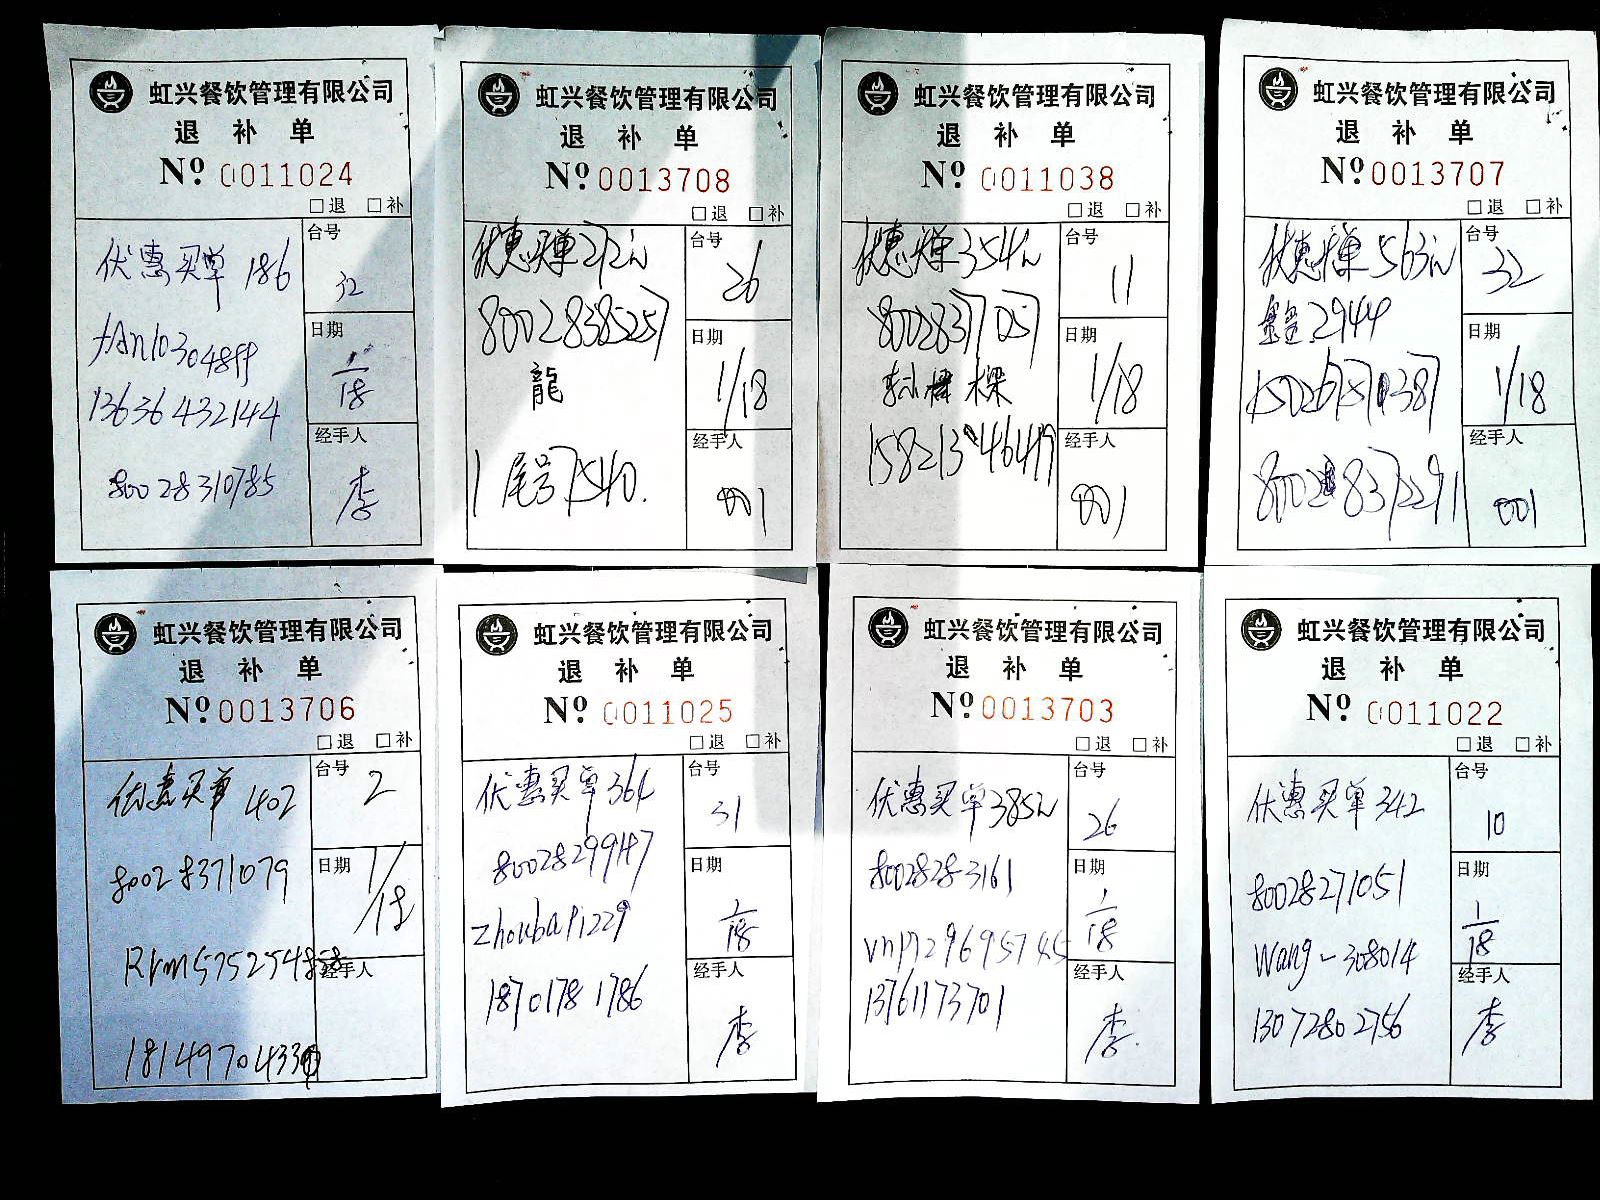 虹兴餐饮管理有限公司
退 补 单
Nº 0011024
□退 □补
优惠买单 186
fan103048ff
13636432144
80028310785
台号
32
日期
1/18
经手人
李
虹兴餐饮管理有限公司
退 补 单
Nº 0013708
□退 □补
优惠买单272元
80028385257
龍
尾号7540.
台号
26
日期
1/18
经手人
001
虹兴餐饮管理有限公司
退 补 单
Nº 0011038
□退 □补
优惠买单354元
80028377057
台号
11
日期
1/18
经手人
001
虹兴餐饮管理有限公司
退 补 单
Nº 0013707
□退 □补
优惠买单563元
鑫2944
80028372291
台号
32
日期
1/18
经手人
001
虹兴餐饮管理有限公司
退 补 单
Nº 0013706
□退 □补
优惠买单 402
80028371079
台号
2
日期
1/18
经手人
虹兴餐饮管理有限公司
退 补 单
Nº 0011025
□退 □补
优惠买单364
80028299147
zhoubapi229
18701781786
台号
31
日期
1/18
经手人
李
虹兴餐饮管理有限公司
退 补 单
Nº 0013703
□退 □补
优惠买单385元
80028283161
13761173701
台号
26
日期
1/18
经手人
李
虹兴餐饮管理有限公司
退 补 单
Nº 0011022
□退 □补
优惠买单342
80028271051
Wang-308014
13072802756
台号
10
日期
1/18
经手人
李